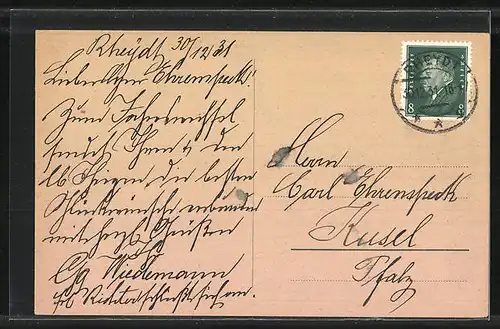 Rheydt 30/12 31
Lieber Herr Ehrenspeck!
Zum Jahreswechsel
sendet Ihnen u. den
lb. Ihrigen die besten
Glückwünsche
mit herzl. Grüßen
Wiedemann
RHEYDT
8 8
Herrn
Carl Ehrenspeck
Kusel
Pfalz